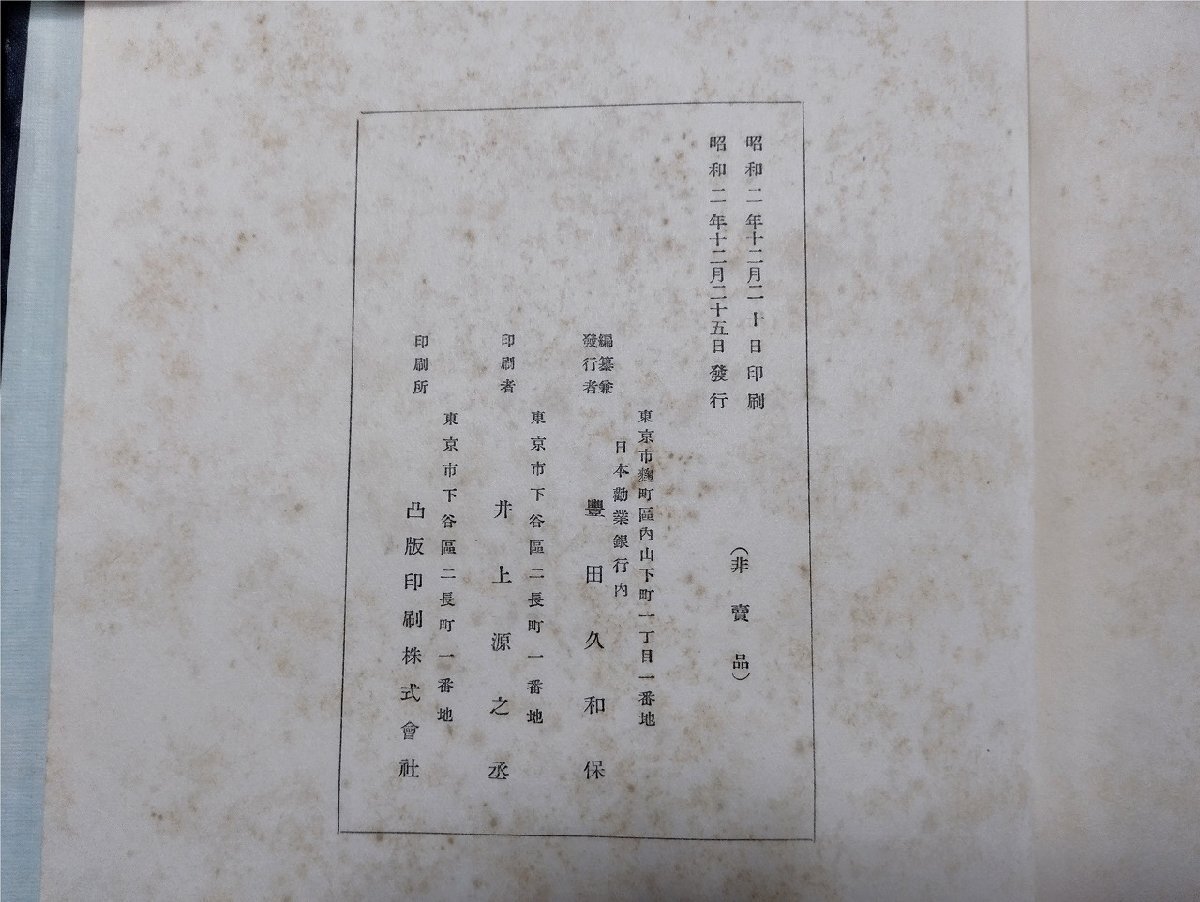 昭和二年十二月二十日印刷
昭和二年十二月二十五日發行
（非賣品）
東京市麴町區內山下町一丁目一番地
日本勸業銀行內
編纂兼
發行者
豐田久和保
東京市下谷區二長町一番地
印刷者
井上源之丞
東京市下谷區二長町一番地
印刷所
凸版印刷株式會社